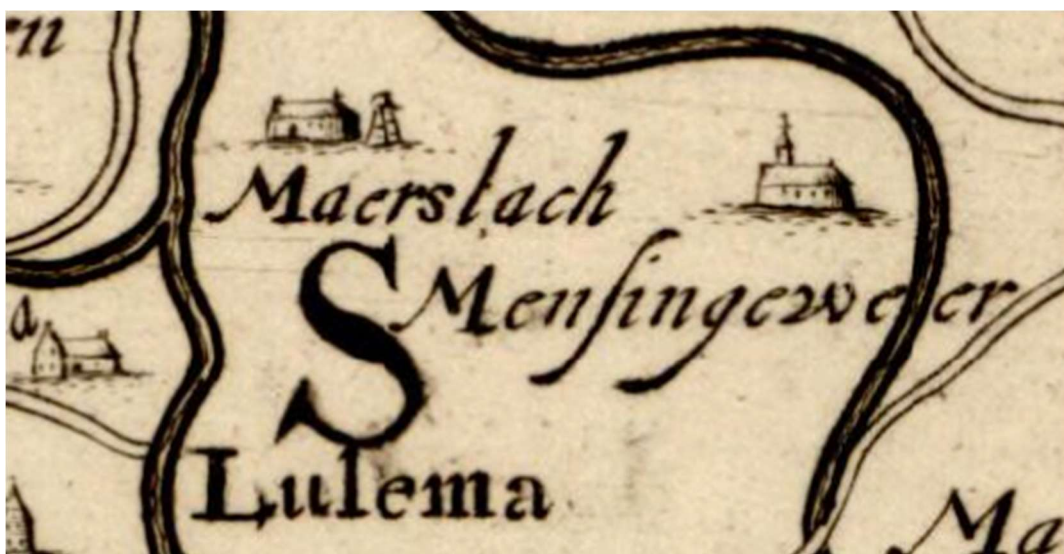 en
Maerslach
S
Menſingeweer
a
Lulema
Ma